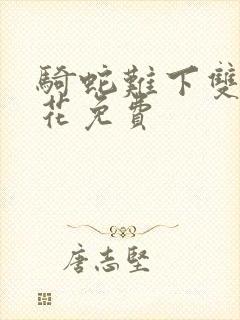 騎蛇難下雙
花免費
唐志堅